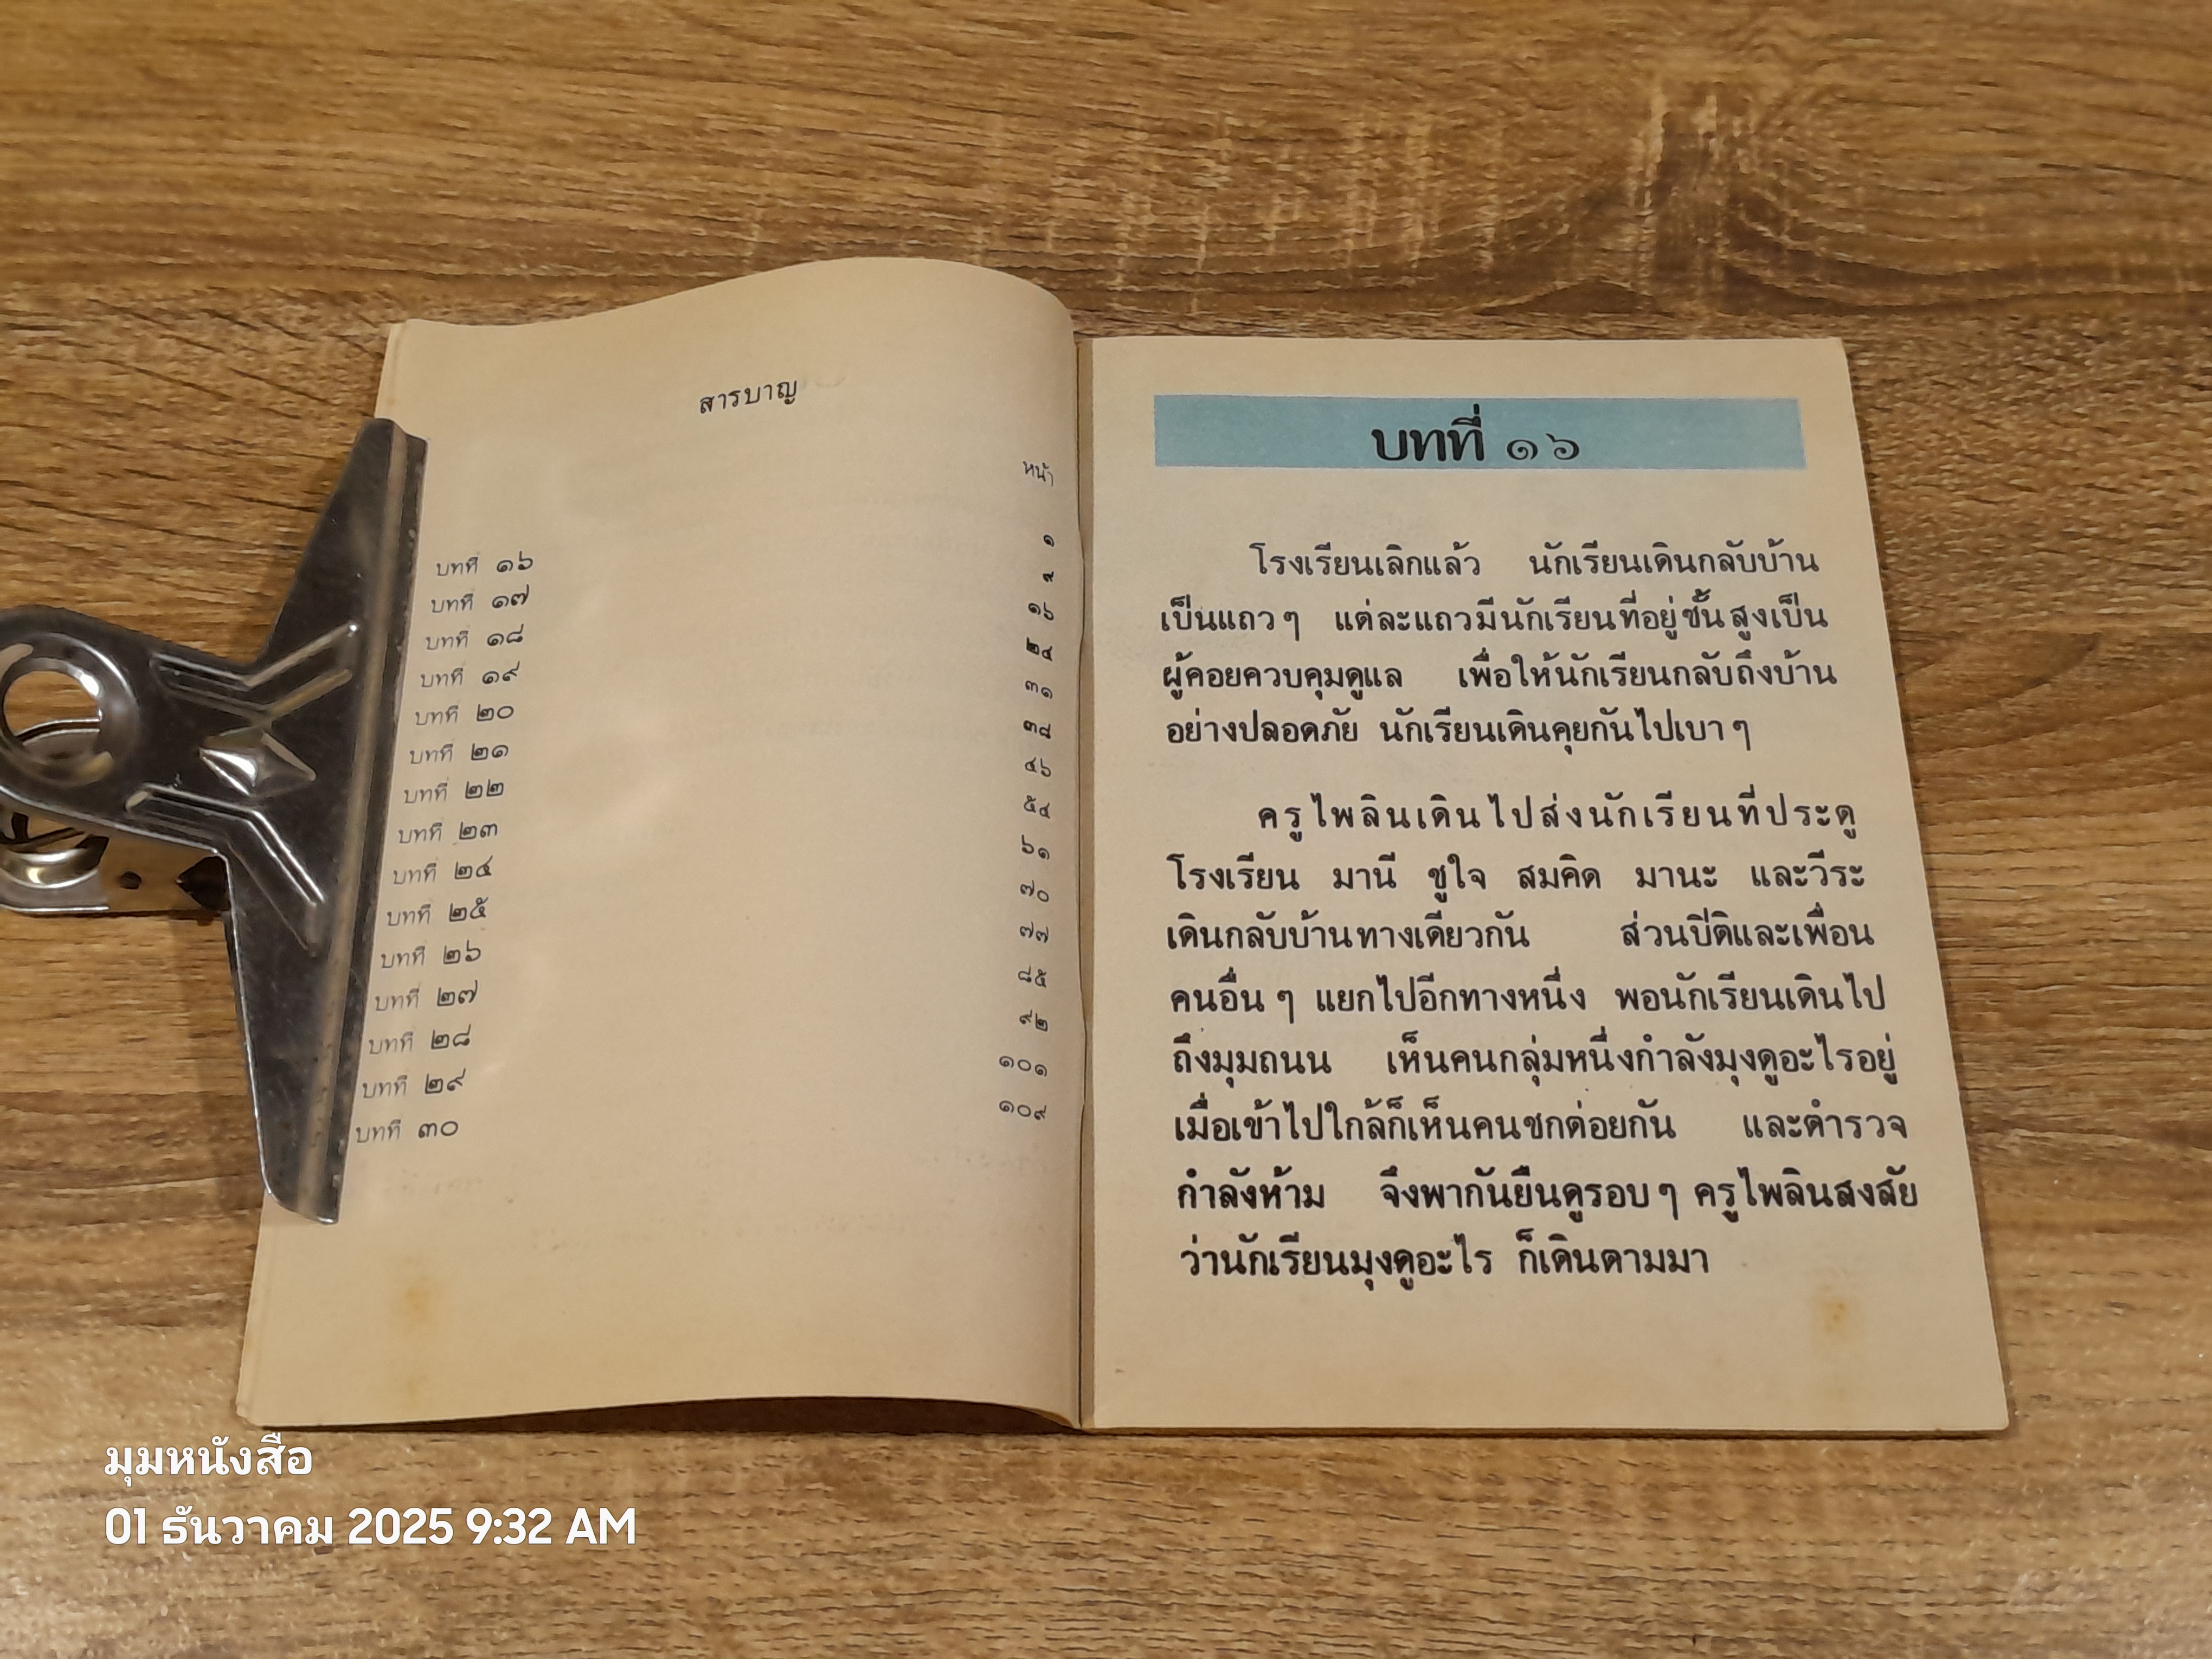 สารบาญ
หน้า
บทที่ ๑๖ ๑
บทที่ ๑๗ ๙
บทที่ ๑๘ ๑๖
บทที่ ๑๙ ๒๔
บทที่ ๒๐ ๓๑
บทที่ ๒๑
บทที่ ๒๒ ๔๖
บทที่ ๒๓ ๕๔
บทที่ ๒๔ ๖๑
บทที่ ๒๕ ๗๐
บทที่ ๒๖ ๗๗
บทที่ ๒๗ ๘๕
บทที่ ๒๘ ๙๒
บทที่ ๒๙ ๑๐๑
บทที่ ๓๐ ๑๐๙
บทที่ ๑๖
โรงเรียนเลิกแล้ว นักเรียนเดินกลับบ้าน
เป็นแถวๆ แต่ละแถวมีนักเรียนที่อยู่ชั้นสูงเป็น
ผู้คอยควบคุมดูแล เพื่อให้นักเรียนกลับถึงบ้าน
อย่างปลอดภัย นักเรียนเดินคุยกันไปเบาๆ
ครูไพลินเดินไปส่งนักเรียนที่ประตู
โรงเรียน มานี ชูใจ สมคิด มานะ และวีระ
เดินกลับบ้านทางเดียวกัน ส่วนปิติและเพื่อน
คนอื่นๆ แยกไปอีกทางหนึ่ง พอนักเรียนเดินไป
ถึงมุมถนน เห็นคนกลุ่มหนึ่งกำลังมุงดูอะไรอยู่
เมื่อเข้าไปใกล้ก็เห็นคนชกต่อยกัน และตำรวจ
กำลังห้าม จึงพากันยืนดูรอบๆ ครูไพลินสงสัย
ว่านักเรียนมุงดูอะไร ก็เดินตามมา
มุมหนังสือ
01 ธันวาคม 2025 9:32 AM